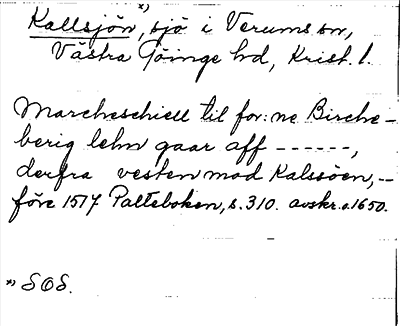 Kallsjön,*) sjö i Verums sn,
Västra Göinge hd, Krist. l.
Marcheschiell til for:ne Birche-
berig lehn gaar aff ------,
derfra vesten mod Kalssöen,--
före 1517 Palteboken, s. 310. avskr. o. 1650.
*) SOS.